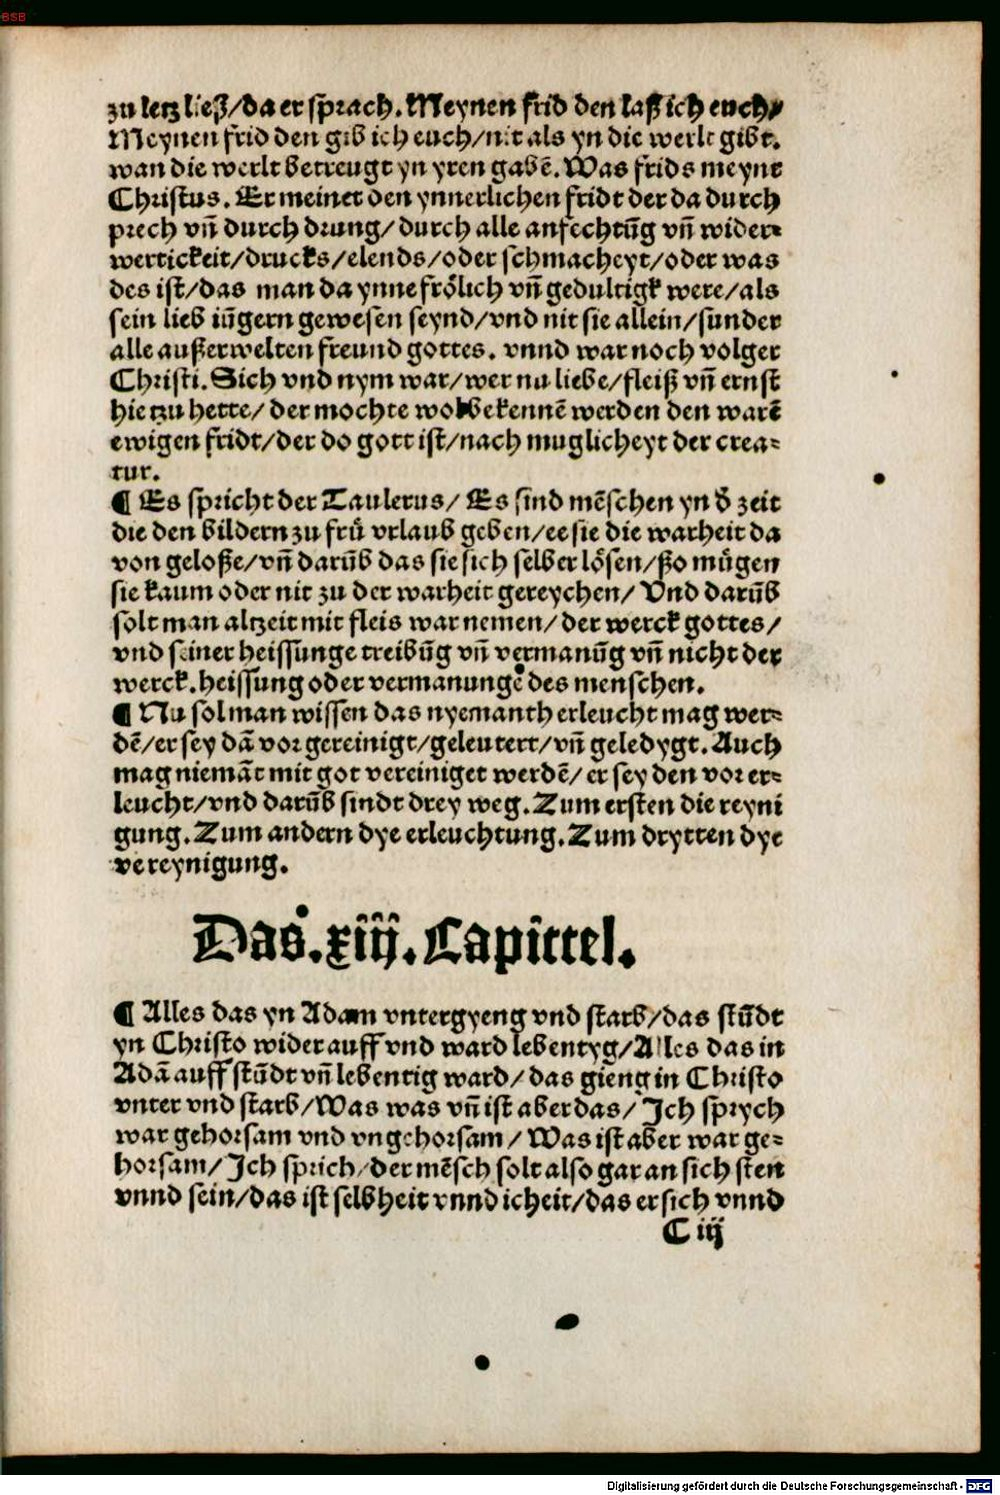 BSB
zu letz ließ/da er sprach. Meynen frid den laß ich euch/
Meynen frid den gib ich euch/nit als yn die werlt gibt.
wan die werlt betreugt yn yren gabē. Was frids meynt
Christus. Er meinet den ynnerlichen fridt der da durch
prech vñ durch drung/durch alle anfechtūg vñ wider-
wertickeit/drucks/elends/oder schmacheyt/oder was
des ist/das man da ynne frölich vñ gedultigk were/als
sein lieb iūgern gewesen seynd/vnd nit sie allein/sunder
alle außerwelten freund gottes. vnnd war noch volger
Christi. Sich vnd nym war/wer nu liebe/fleiß vñ ernst
hie tzu hette/der mochte wol bekennē werden den warē
ewigen fridt/der do gott ist/nach muglicheyt der crea-
tur.
¶ Es spricht der Taulerus/ Es sind mēschen yn d̄ zeit
die den bildern zu frü vrlaub geben/ee sie die warheit da
von geloße/vñ darūb das sie sich selber lösen/ßo mügen
sie kaum oder nit zu der warheit gereychen/ Vnd darūb
solt man altzeit mit fleis war nemen/der werck gottes/
vnd seiner heissunge treibūg vñ vermanūg vñ nicht der
werck.heissung oder vermanunge des menschen.
¶ Nu sol man wissen das nyemanth erleucht mag wer-
dē/er sey dā vor gereinigt/geleutert/vñ geledygt. Auch
mag niemāt mit got vereiniget werdē/er sey den vor er-
leucht/vnd darūb sindt drey weg. Zum ersten die reyni
gung. Zum andern dye erleuchtung. Zum drytten dye
vereynigung.
Das.xiij.Capittel.
¶ Alles das yn Adam vntergyeng vnd starb/das stūdt
yn Christo wider auff vnd ward lebentyg/Alles das in
Adā auff stūdt vñ lebentig ward/das gieng in Christo
vnter vnd starb/Was was vñ ist aber das/Jch sprych
war gehorsam vnd vngehorsam/ Was ist aber war ge-
horsam/Jch sprich/der mēsch solt also gar an sich sten
vnnd sein/das ist selbheit vnnd icheit/das er sich vnnd
C iij
Digitalisierung gefördert durch die Deutsche Forschungsgemeinschaft - DFG